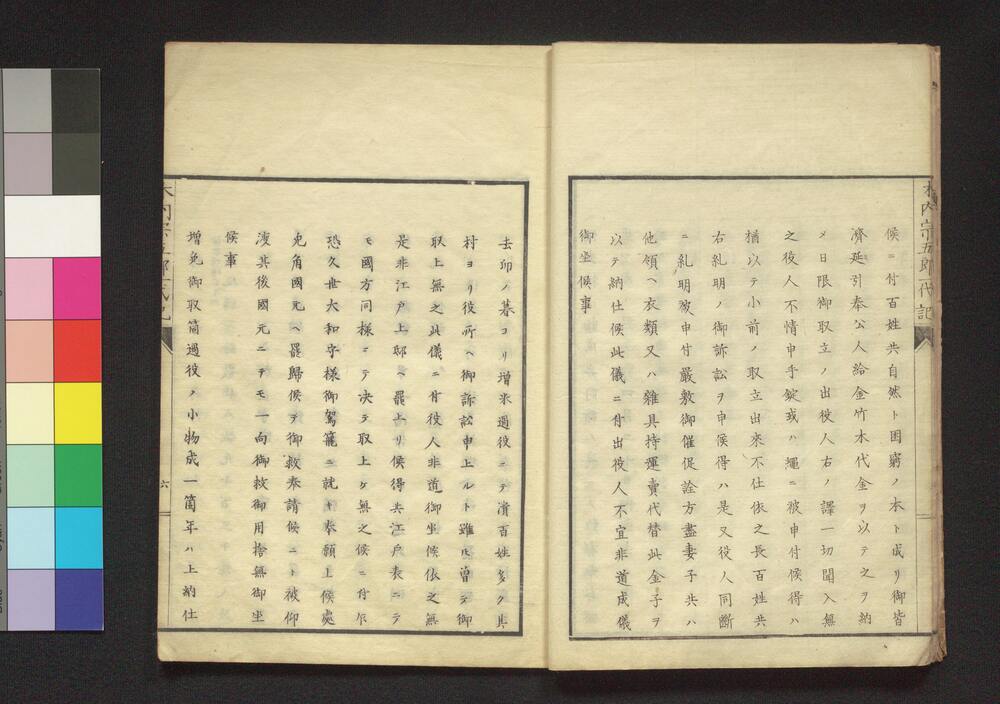 木内宗五郎一代記
候ニ付百姓共自然ト困窮ノ本ト成リ御皆
濟延引奉公人給金竹木代金ヲ以テ之ヲ納
メ日限御取立ノ出役人右ノ譯一切聞入無
之役人不情申手錠或ハ繩ニ被申付候得ハ
猶以テ小前ノ取立出來不仕依之長百姓共
右糺明ノ御訴訟ヲ申候得ハ是又役人同斷
ニ糺明被申付嚴敷御催促詮方盡妻子共ハ
他領ヘ衣類又ハ雜具持運賣代替此金子ヲ
以テ納仕候此儀ニ付出役人不宜非道成儀
御坐候事
去卯ノ暮ヨリ增米過役ニテ潰百姓多ク則
村ヨリ役所ヘ御訴訟申上ルト雖𪜈曾テ御
取上無之此儀ニ付役人非道御坐候依之無
是非江戸上邸ヘ罷上リ候得共江戸表ニテ
モ國方同樣ニテ決テ取上ケ無之候ニ付乍
恐久世大和守樣御駕籠ニ就キ奉願上候處
兎角國元ヘ罷歸候テ御救奉請候ニト被仰
渡其後國元ニテモ一向御救御用捨無御坐
候事
增免御取箇過役ノ小物成一箇年ハ上納仕
六